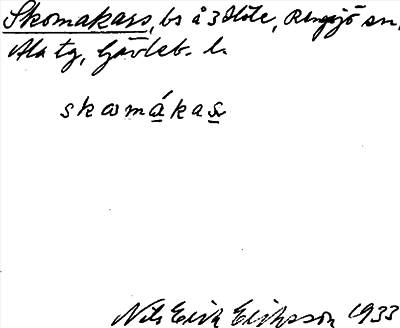 Skomakars, bs å 3 Höle, Rengsjö sn,
Ala tg, Gävleb. l.
skomákas
Nils Erik Eriksson 1933